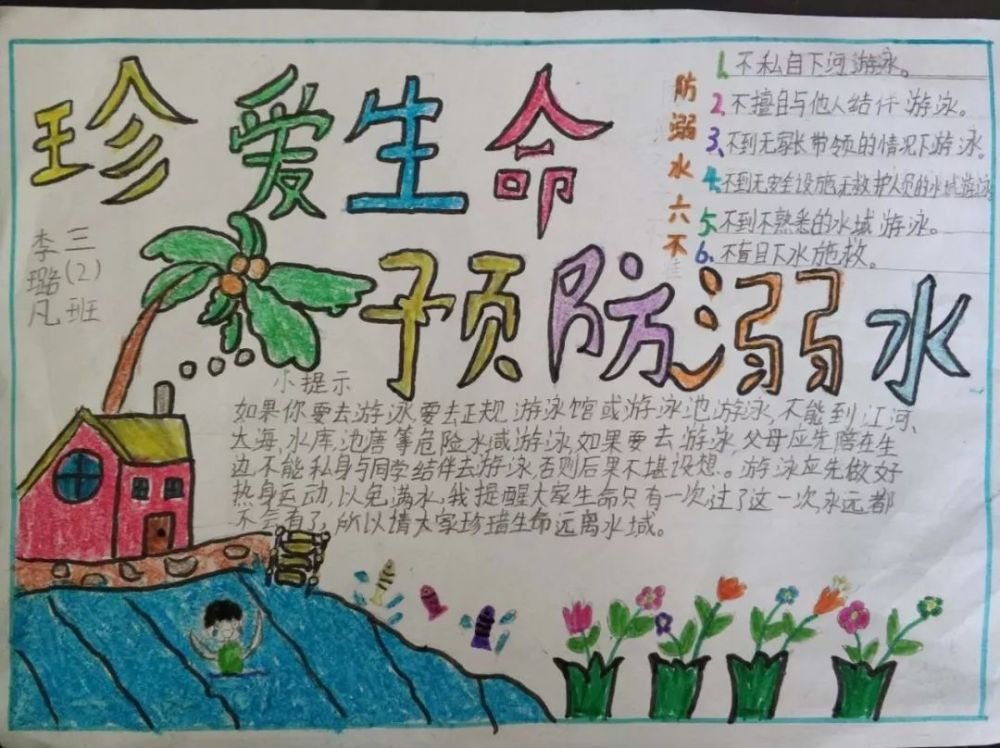 珍爱生命
预防溺水
三(2)班
李璐凡
防溺水六不准
1.不私自下河游泳。
2.不擅自与他人结伴游泳。
3.不到无家长带领的情况下游泳。
4.不到无安全设施,无救护人员的水域游泳
5.不到不熟悉的水域游泳。
6.不盲目下水施救。
小提示
如果你要去游泳要去正规游泳馆或游泳池游泳,不能到江河、
大海,水库,池唐等危险水域游泳,如果要去游泳,父母应先陪在生
边,不能私身与同学结伴去游泳,否则后果不堪设想。游泳应先做好
热身运动,以免满水,我提醒大家生命只有一次,过了这一次,永远都
不会有了,所以请大家珍瑙生命远离水域。